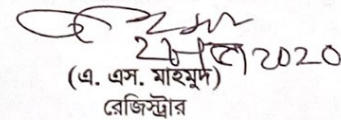 2020
(এ. এস. মাহমুদ)
রেজিস্ট্রার